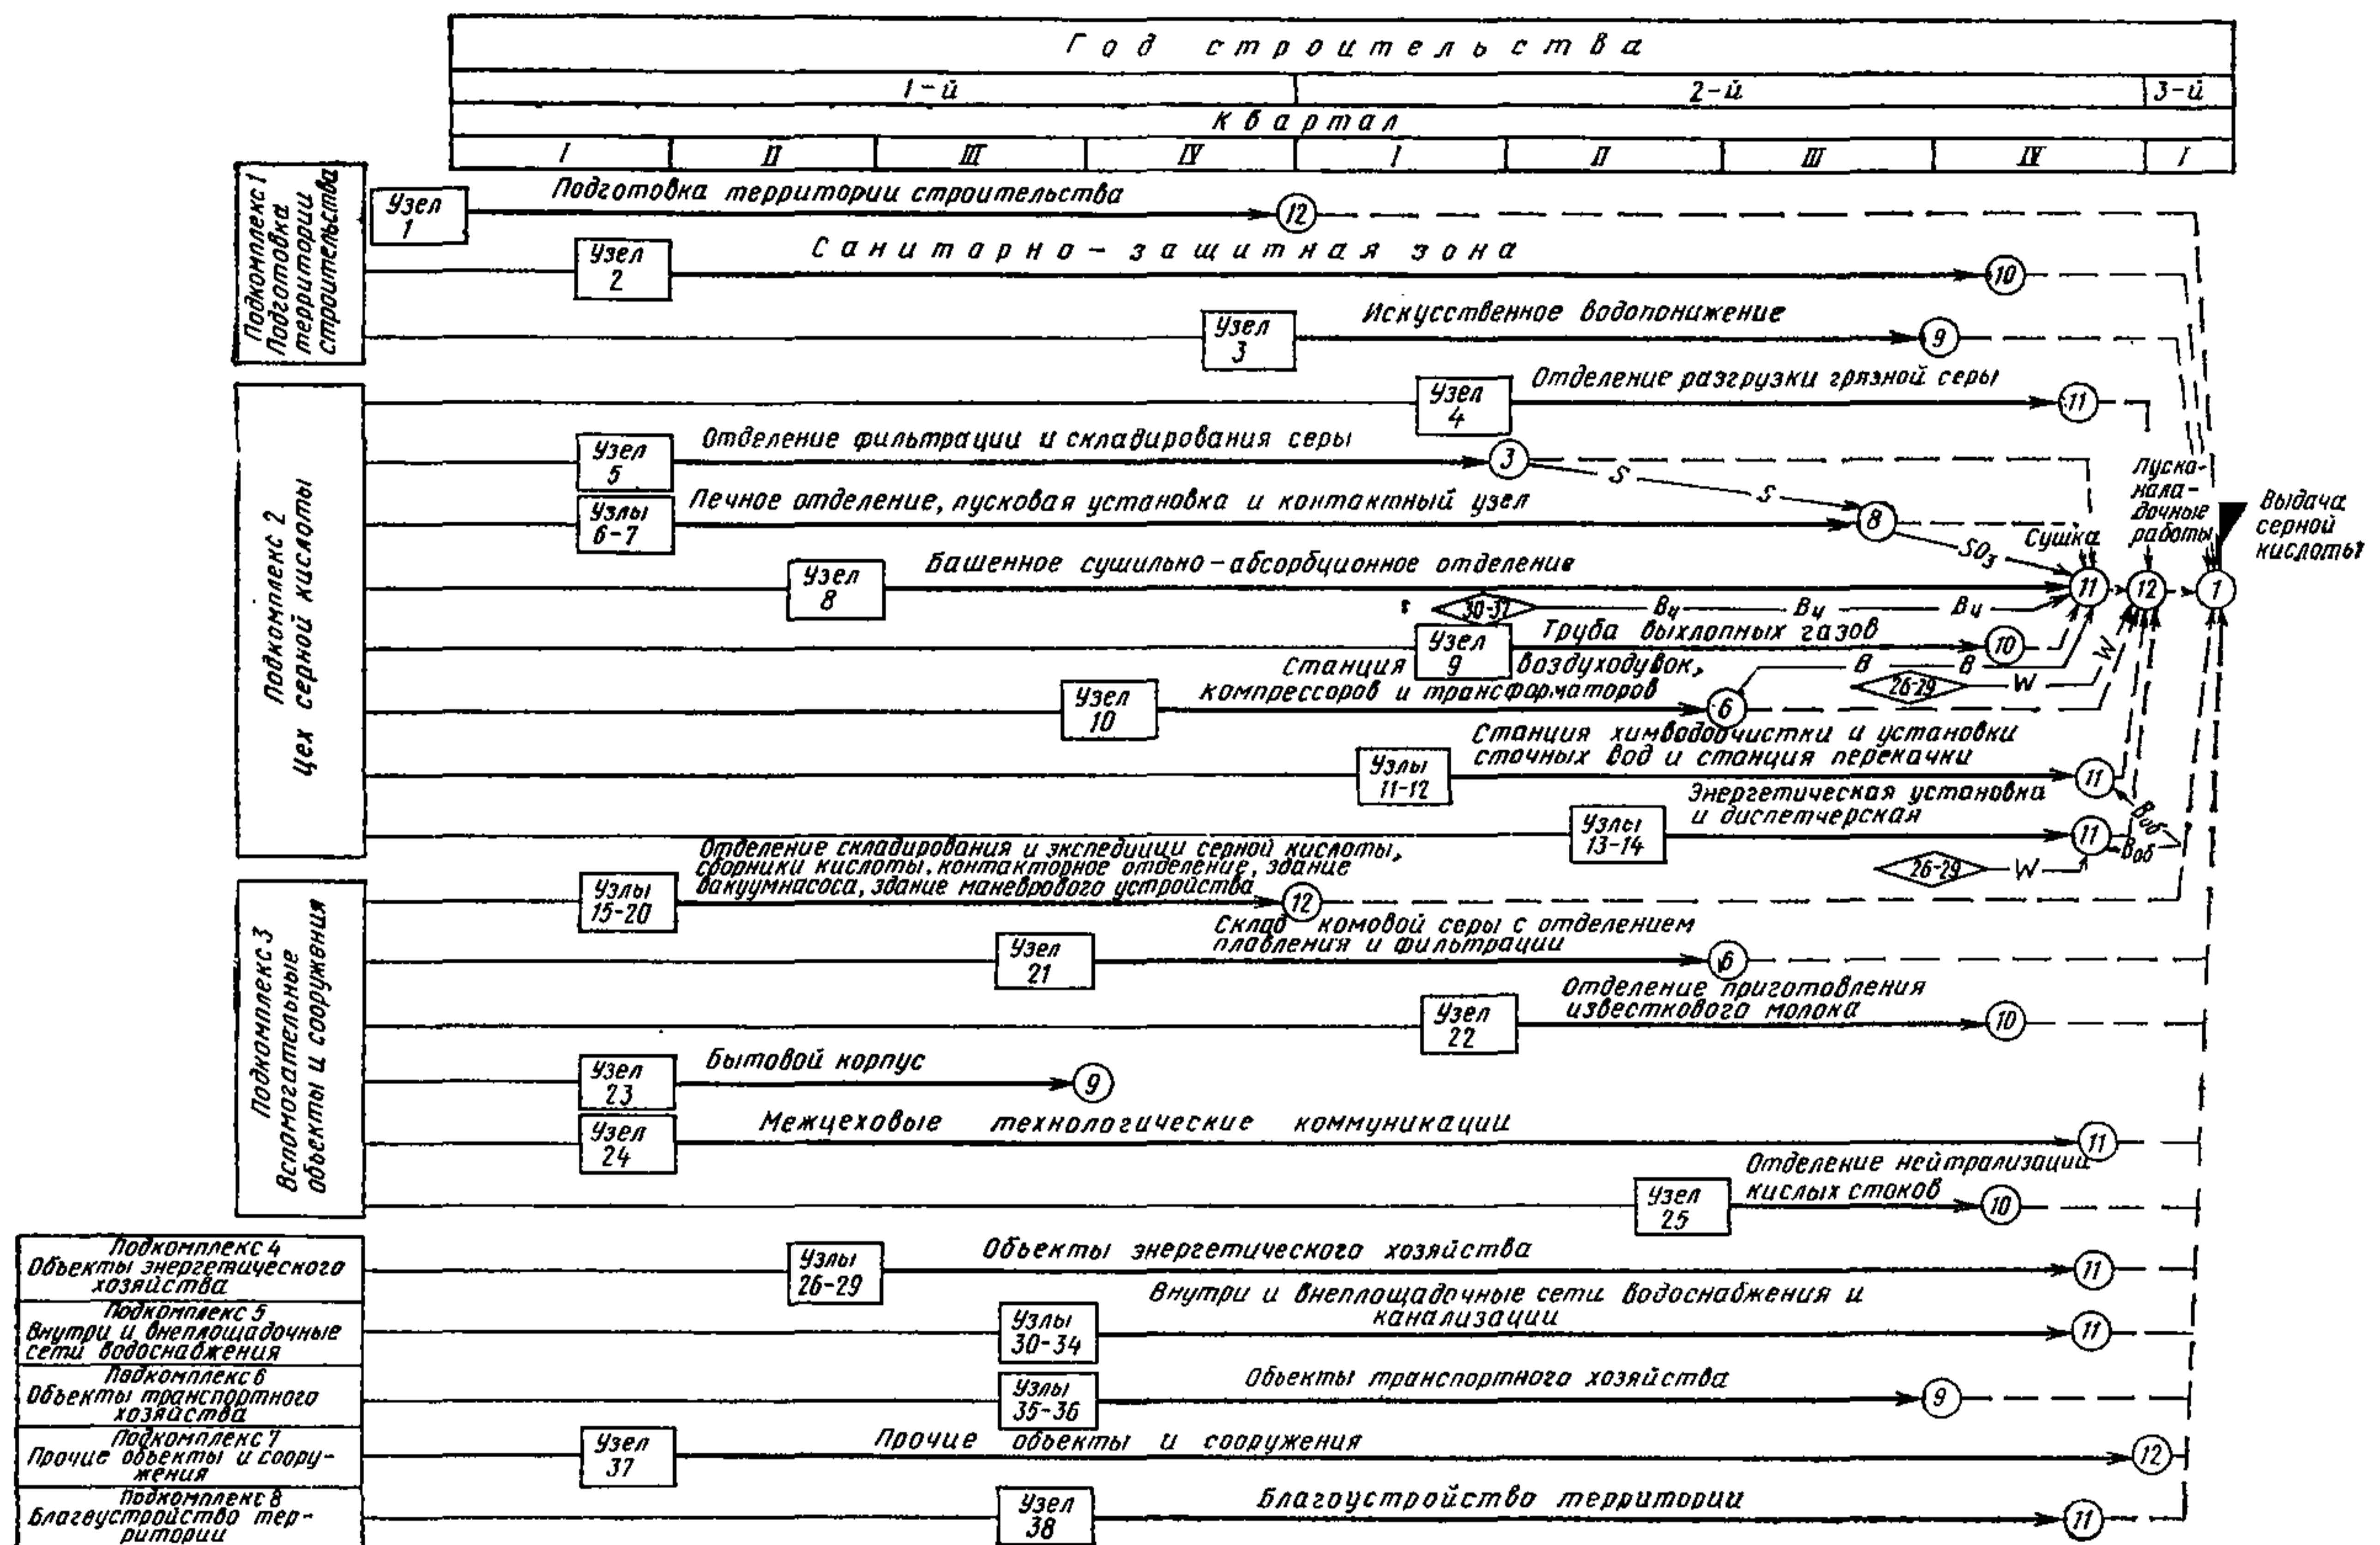 Год строительства
1-й 2-й 3-й
Квартал
I II III IV I II III IV I
Подкомплекс 1
Подготовка
территории
строительства
Узел
1
Подготовка территории строительства
12
Узел
2
Санитарно-защитная зона
10
Узел
3
Искусственное водопонижение
9
Подкомплекс 2
Цех серной кислоты
Узел
4
Отделение разгрузки грязной серы
11
Узел
5
Отделение фильтрации и складирования серы
3
S S
Узлы
6-7
Печное отделение, пусковая установка и контактный узел
8
SO3
Сушка
Пуско-
нала-
дочные
работы
Выдача
серной
кислоты
Узел
8
Башенное сушильно-абсорбционное отделение
11 12 1
Вч Вч Вч
Узел
9
Труба выхлопных газов
10
Станция воздуходувок,
компрессоров и трансформаторов
Узел
10
6
В В
26-29
W W
Станция химводоочистки и установки
сточных вод и станция перекачки
Узлы
11-12
11
Энергетическая установка
и диспетчерская
Узлы
13-14
11
Воб
Воб
26-29
W
Подкомплекс 3
Вспомогательные
объекты и сооружения
Отделение складирования и экспедиции серной кислоты,
сборники кислоты, контакторное отделение, здание
вакуумнасоса, здание маневрового устройства
Узлы
15-20
12
Склад комовой серы с отделением
плавления и фильтрации
Узел
21
6
Отделение приготовления
известкового молока
Узел
22
10
Узел
23
Бытовой корпус
9
Узел
24
Межцеховые технологические коммуникации
11
Отделение нейтрализации
кислых стоков
Узел
25
10
Подкомплекс 4
Объекты энергетического
хозяйства
Узлы
26-29
Объекты энергетического хозяйства
11
Подкомплекс 5
Внутри и внеплощадочные
сети водоснабжения
Узлы
30-34
Внутри и внеплощадочные сети водоснабжения и
канализации
11
Подкомплекс 6
Объекты транспортного
хозяйства
Узлы
35-36
Объекты транспортного хозяйства
9
Подкомплекс 7
Прочие объекты и соору-
жения
Узел
37
Прочие объекты и сооружения
12
Подкомплекс 8
Благоустройство тер-
ритории
Узел
38
Благоустройство территории
11